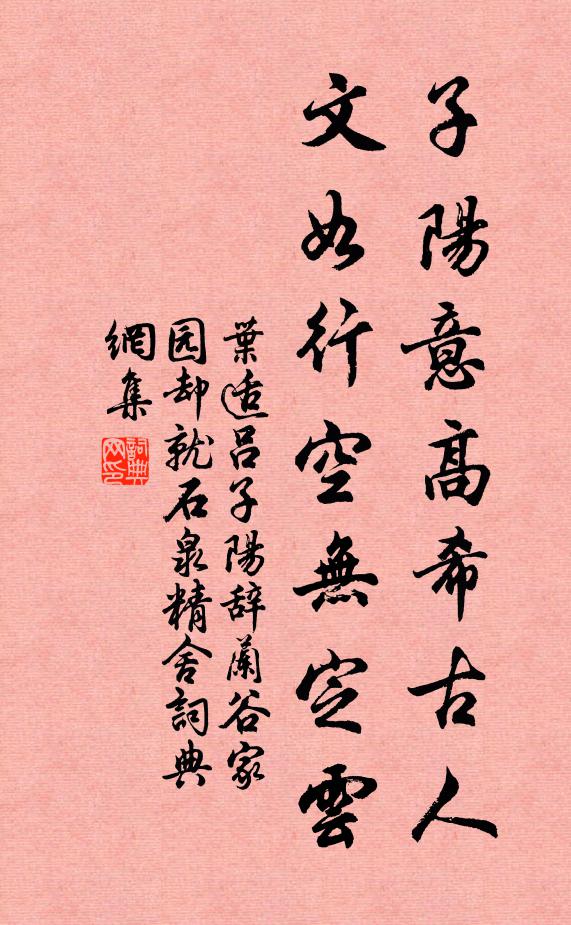 子陽意高希古人
文如行空無定雲
葉适吕子陽辞蘭谷家
园却就石泉精舍詞典
網集
詞典
网印